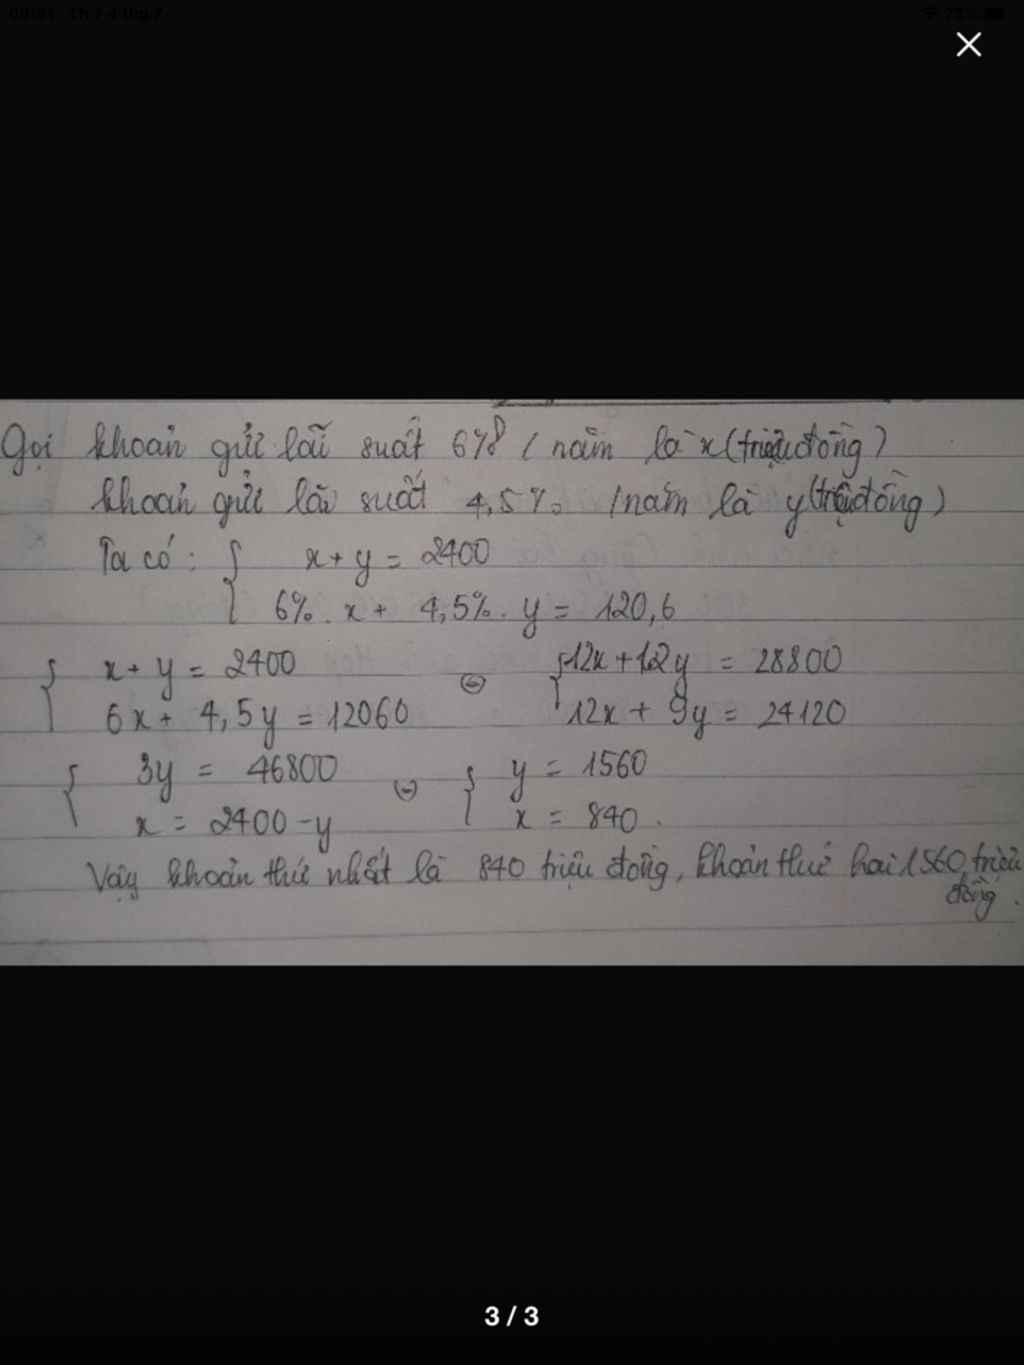 08:31 Th 7 4 thg 7 73%
Gọi khoản gửi lãi suất 6% / năm là x (triệu đồng)
khoản gửi lãi suất 4,5% /năm là y (triệu đồng)
Ta có: { x + y = 2400
6% . x + 4,5% . y = 120,6
{ x + y = 2400 ⇔ { 12x + 12y = 28800
6x + 4,5y = 12060 12x + 9y = 24120
{ 3y = 46800 ⇔ { y = 1560
x = 2400 - y x = 840 .
Vậy khoản thứ nhất là 840 triệu đồng, khoản thứ hai 1560 triệu
đồng .
3 / 3